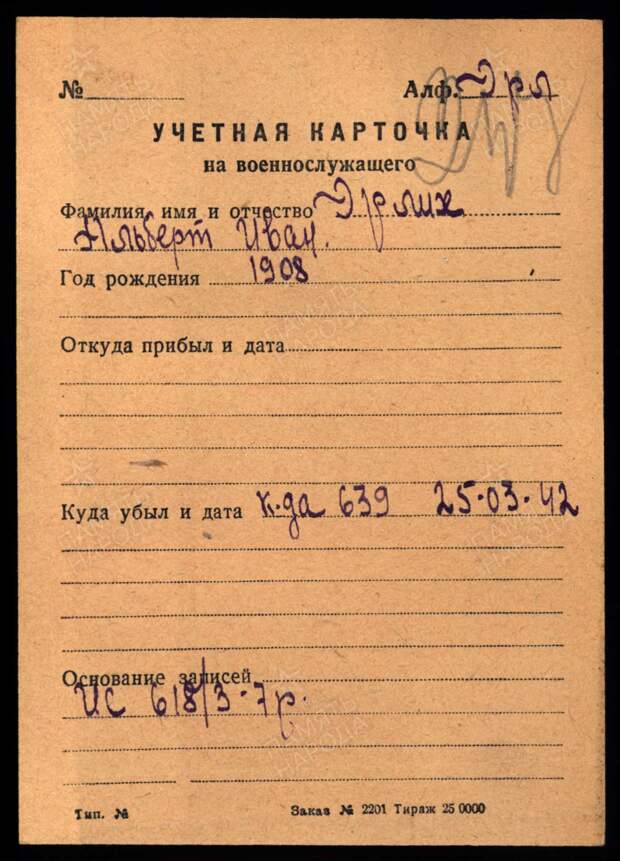 № Алф. Эрл
УЧЕТНАЯ КАРТОЧКА
на военнослужащего
Фамилия, имя и отчество Эрлих
Альберт Иван.
Год рождения 1908
Откуда прибыл и дата
Куда убыл и дата к-да 639 25-03-42
Основание записей
ИС 618/3-7р.
Тип. № Заказ № 2201 Тираж 25 0000